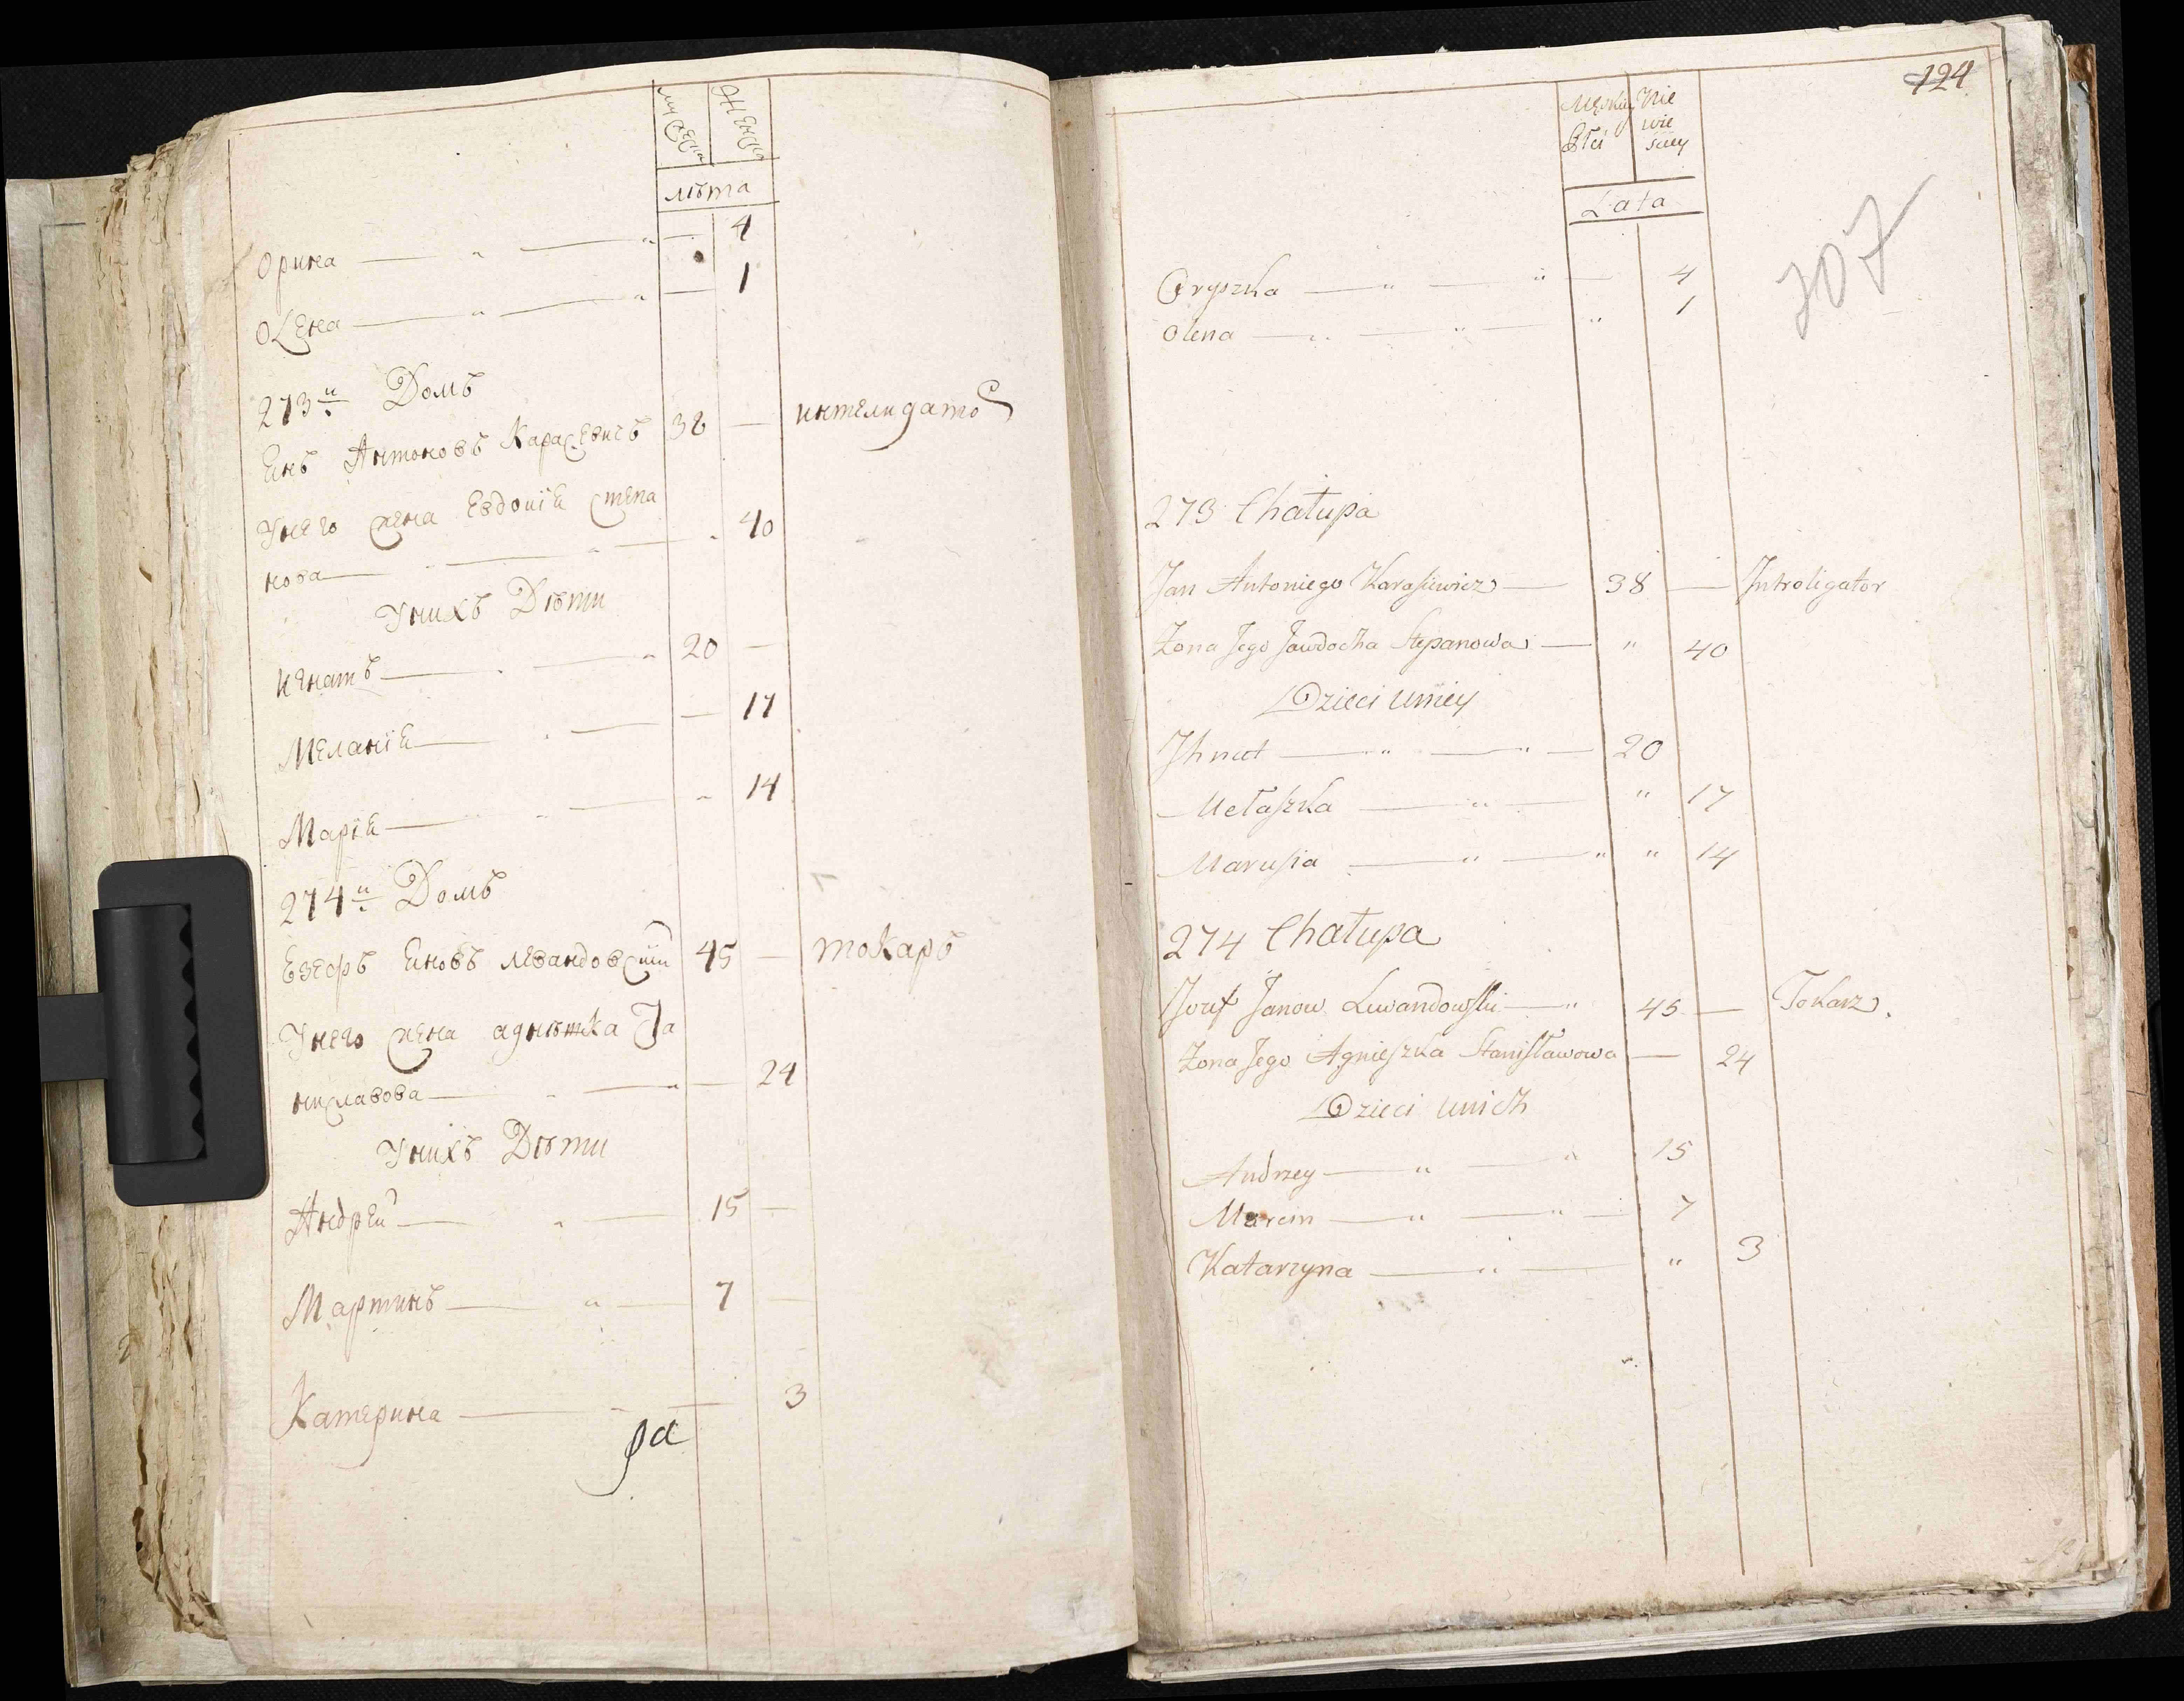 мужеска
женска
лѣта
Орина — „ — „ — 4
Олена — „ — „ — 1
273й Домъ
Янъ Антоновъ Карасевичъ 38 — интелигатоꙵ
Унего жена Евдокія Степа
нова — „ — „ — „ 40
Унихъ Дѣти
Игнатъ — „ — „ 20 —
Меланія — „ — — 17
Марія — „ — „ 14
274й Домъ
Езефъ Яновъ Левандовскій 45 — токаръ
Унего жена агнѣшка Ста
ниславова — „ — „ — 24
Унихъ Дѣти
Андрей — „ — 15 —
Мартинъ — „ — 7 —
Катерина — „ — 3
124
Męskiey
Płci
Nie
wie
sciey
Lata
307
Oryszka — „ — „ — 4
Olena — „ — „ — „ 1
273 Chałupa
Jan Antoniego Karasiewicz — 38 — Introligator
Żona Jego Jawdocha Stepanowa — „ 40
Dzieci Uniey
Ihnat — „ — „ — 20
Melaszka — „ — „ 17
Marusia — „ — „ „ 14
274 Chałupa
Jozef Janow Lewandowski — „ 45 — Tokarz.
Żona Jego Agnieszka Stanisławowa — 24
Dzieci Unich
Andrzey — „ — „ 15
Marcin — „ — „ — 7
Katarzyna — „ — „ 3